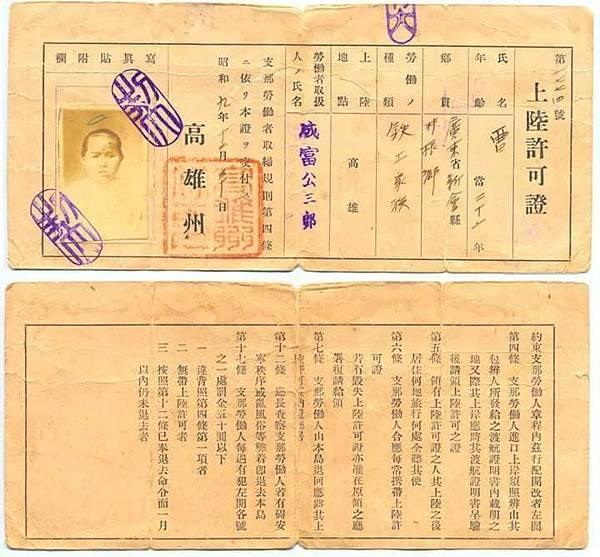 第一七四號
上陸許可證
氏名 曹
年齡 當二十 年
鄉貫 廣東省新會縣
勞働ノ種類 鉄工家族
上陸地點 高雄
勞働者取扱人ノ氏名 成富公三郎
支那勞働者取締規則第四條
ニ依リ本證ヲ交付ス
昭和九年十 月 日
高雄州
寫眞貼附欄
約束支那勞働人章程內茲行配開改者左開
第四條 支那勞働人進口上岸須照辨由其
包辨人所發給之渡航證明書內載明之
地又際其上岸應將其渡航證明書呈驗
後請領上陸許可之證
第五條 領有上陸許可證之人其上陸之後
居住何地旅行何處全聽其便
第六條 支那勞働人合應每常携帶上陸許
可證
若有毀失上陸許可證亦准在原領之廳
署復請給領
第七條 支那勞働人由本島退回應將其上
陸許可證
第十二條 廳長查察支那勞働人若有碍安
寧秩序或亂風俗等弊着卽退去本島
第十七條 支那勞働人每遇有犯左開各號
之一處罰金五十圓以下
一 違背照第四條第一項者
二 無帶上陸許可者
三 按照第十二條已奉退去命令而一月
以內仍未退去者